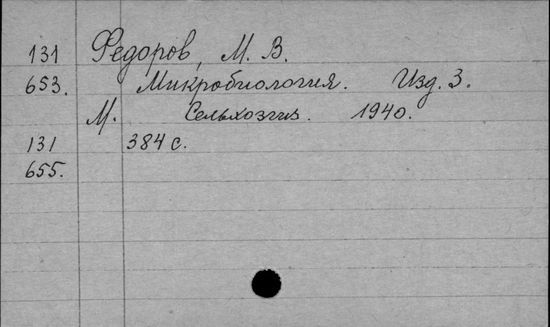 131 Федоров, М. В.
653. Микробиология. Изд. 3.
М. Сельхозгиз. 1940.
131 384 с.
655.